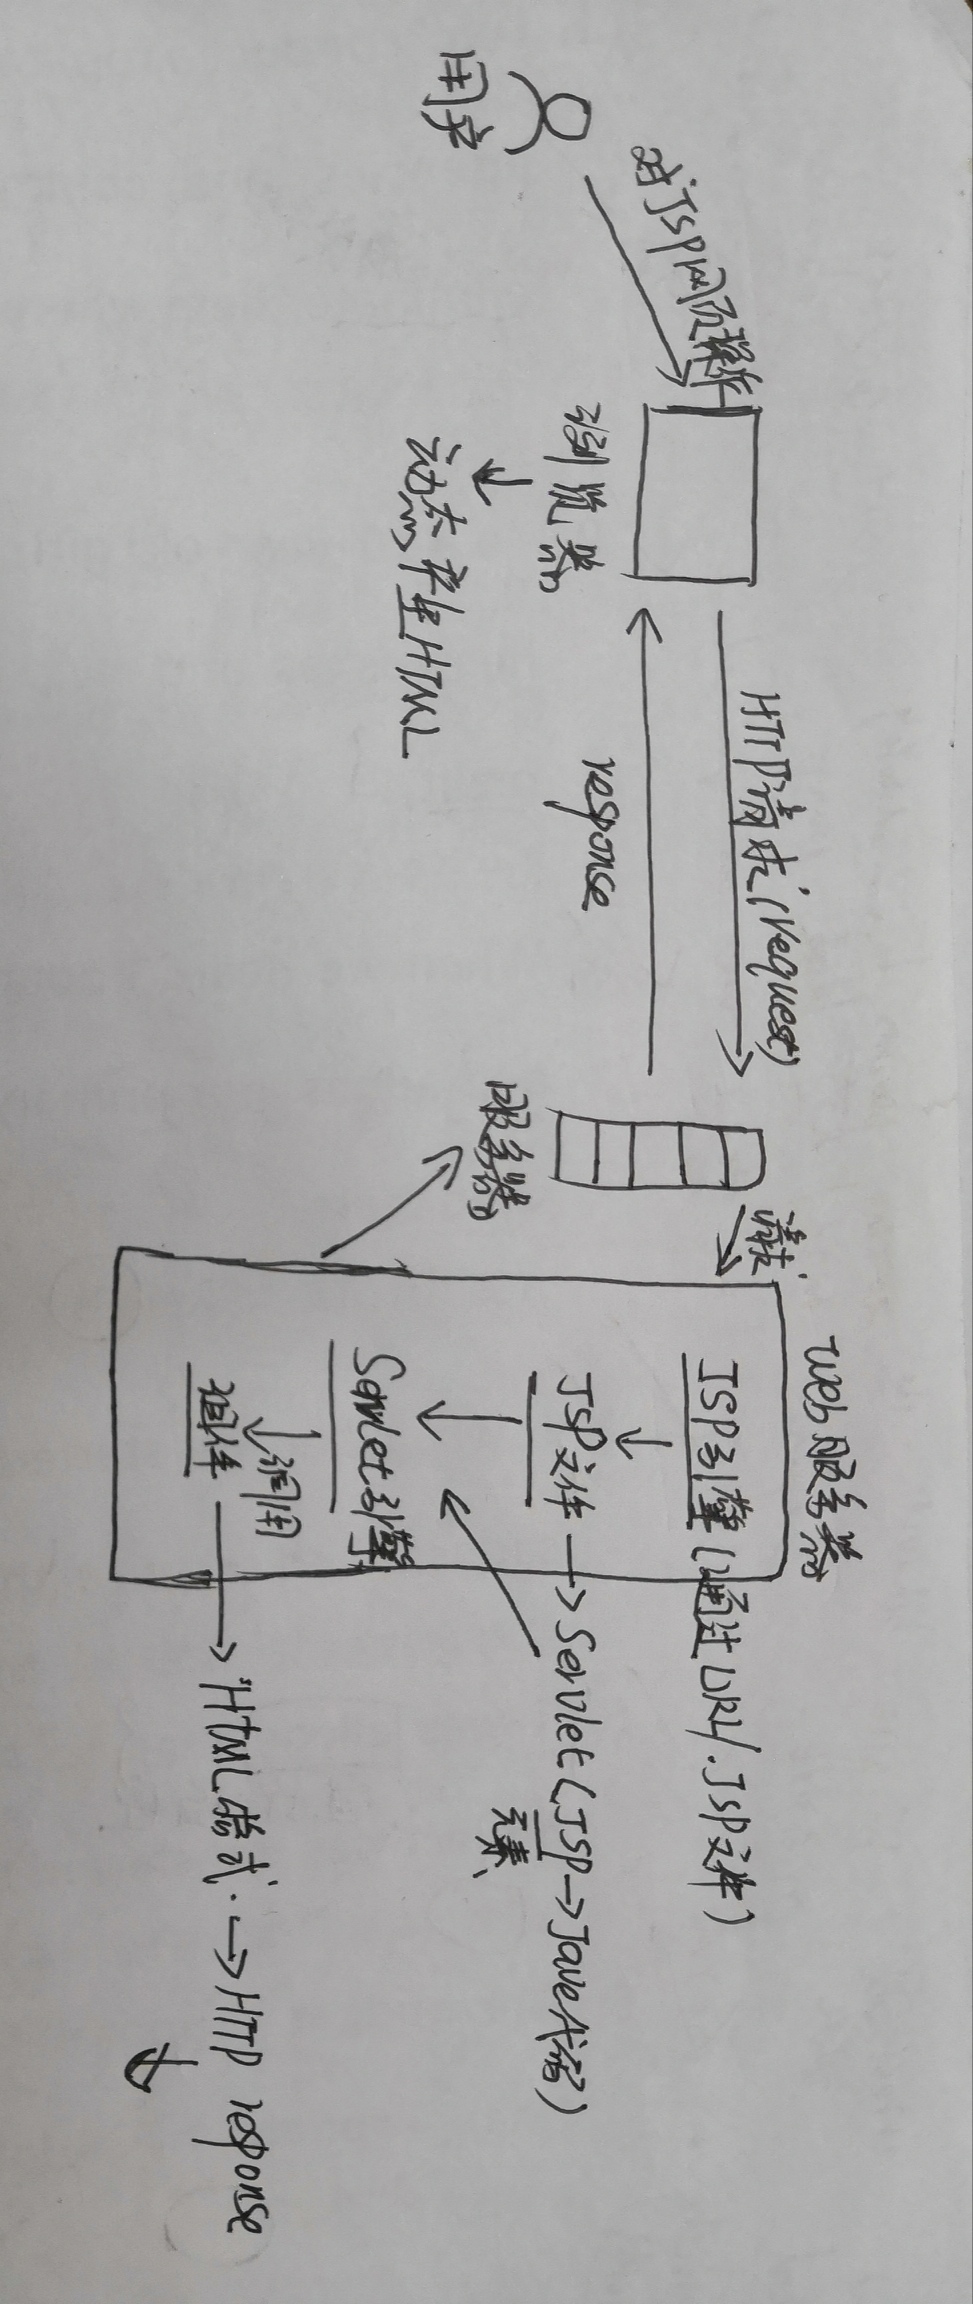 用户
对JSP网页操作
浏览器
动态产生HTML
HTTP请求(request)
response
服务器
请求
Web服务器
JSP引擎(通过URL/.JSP文件)
JSP文件→Servlet(JSP→Java代码)
元素
Servlet引擎
调用
组件→"HTML格式.→HTTP response